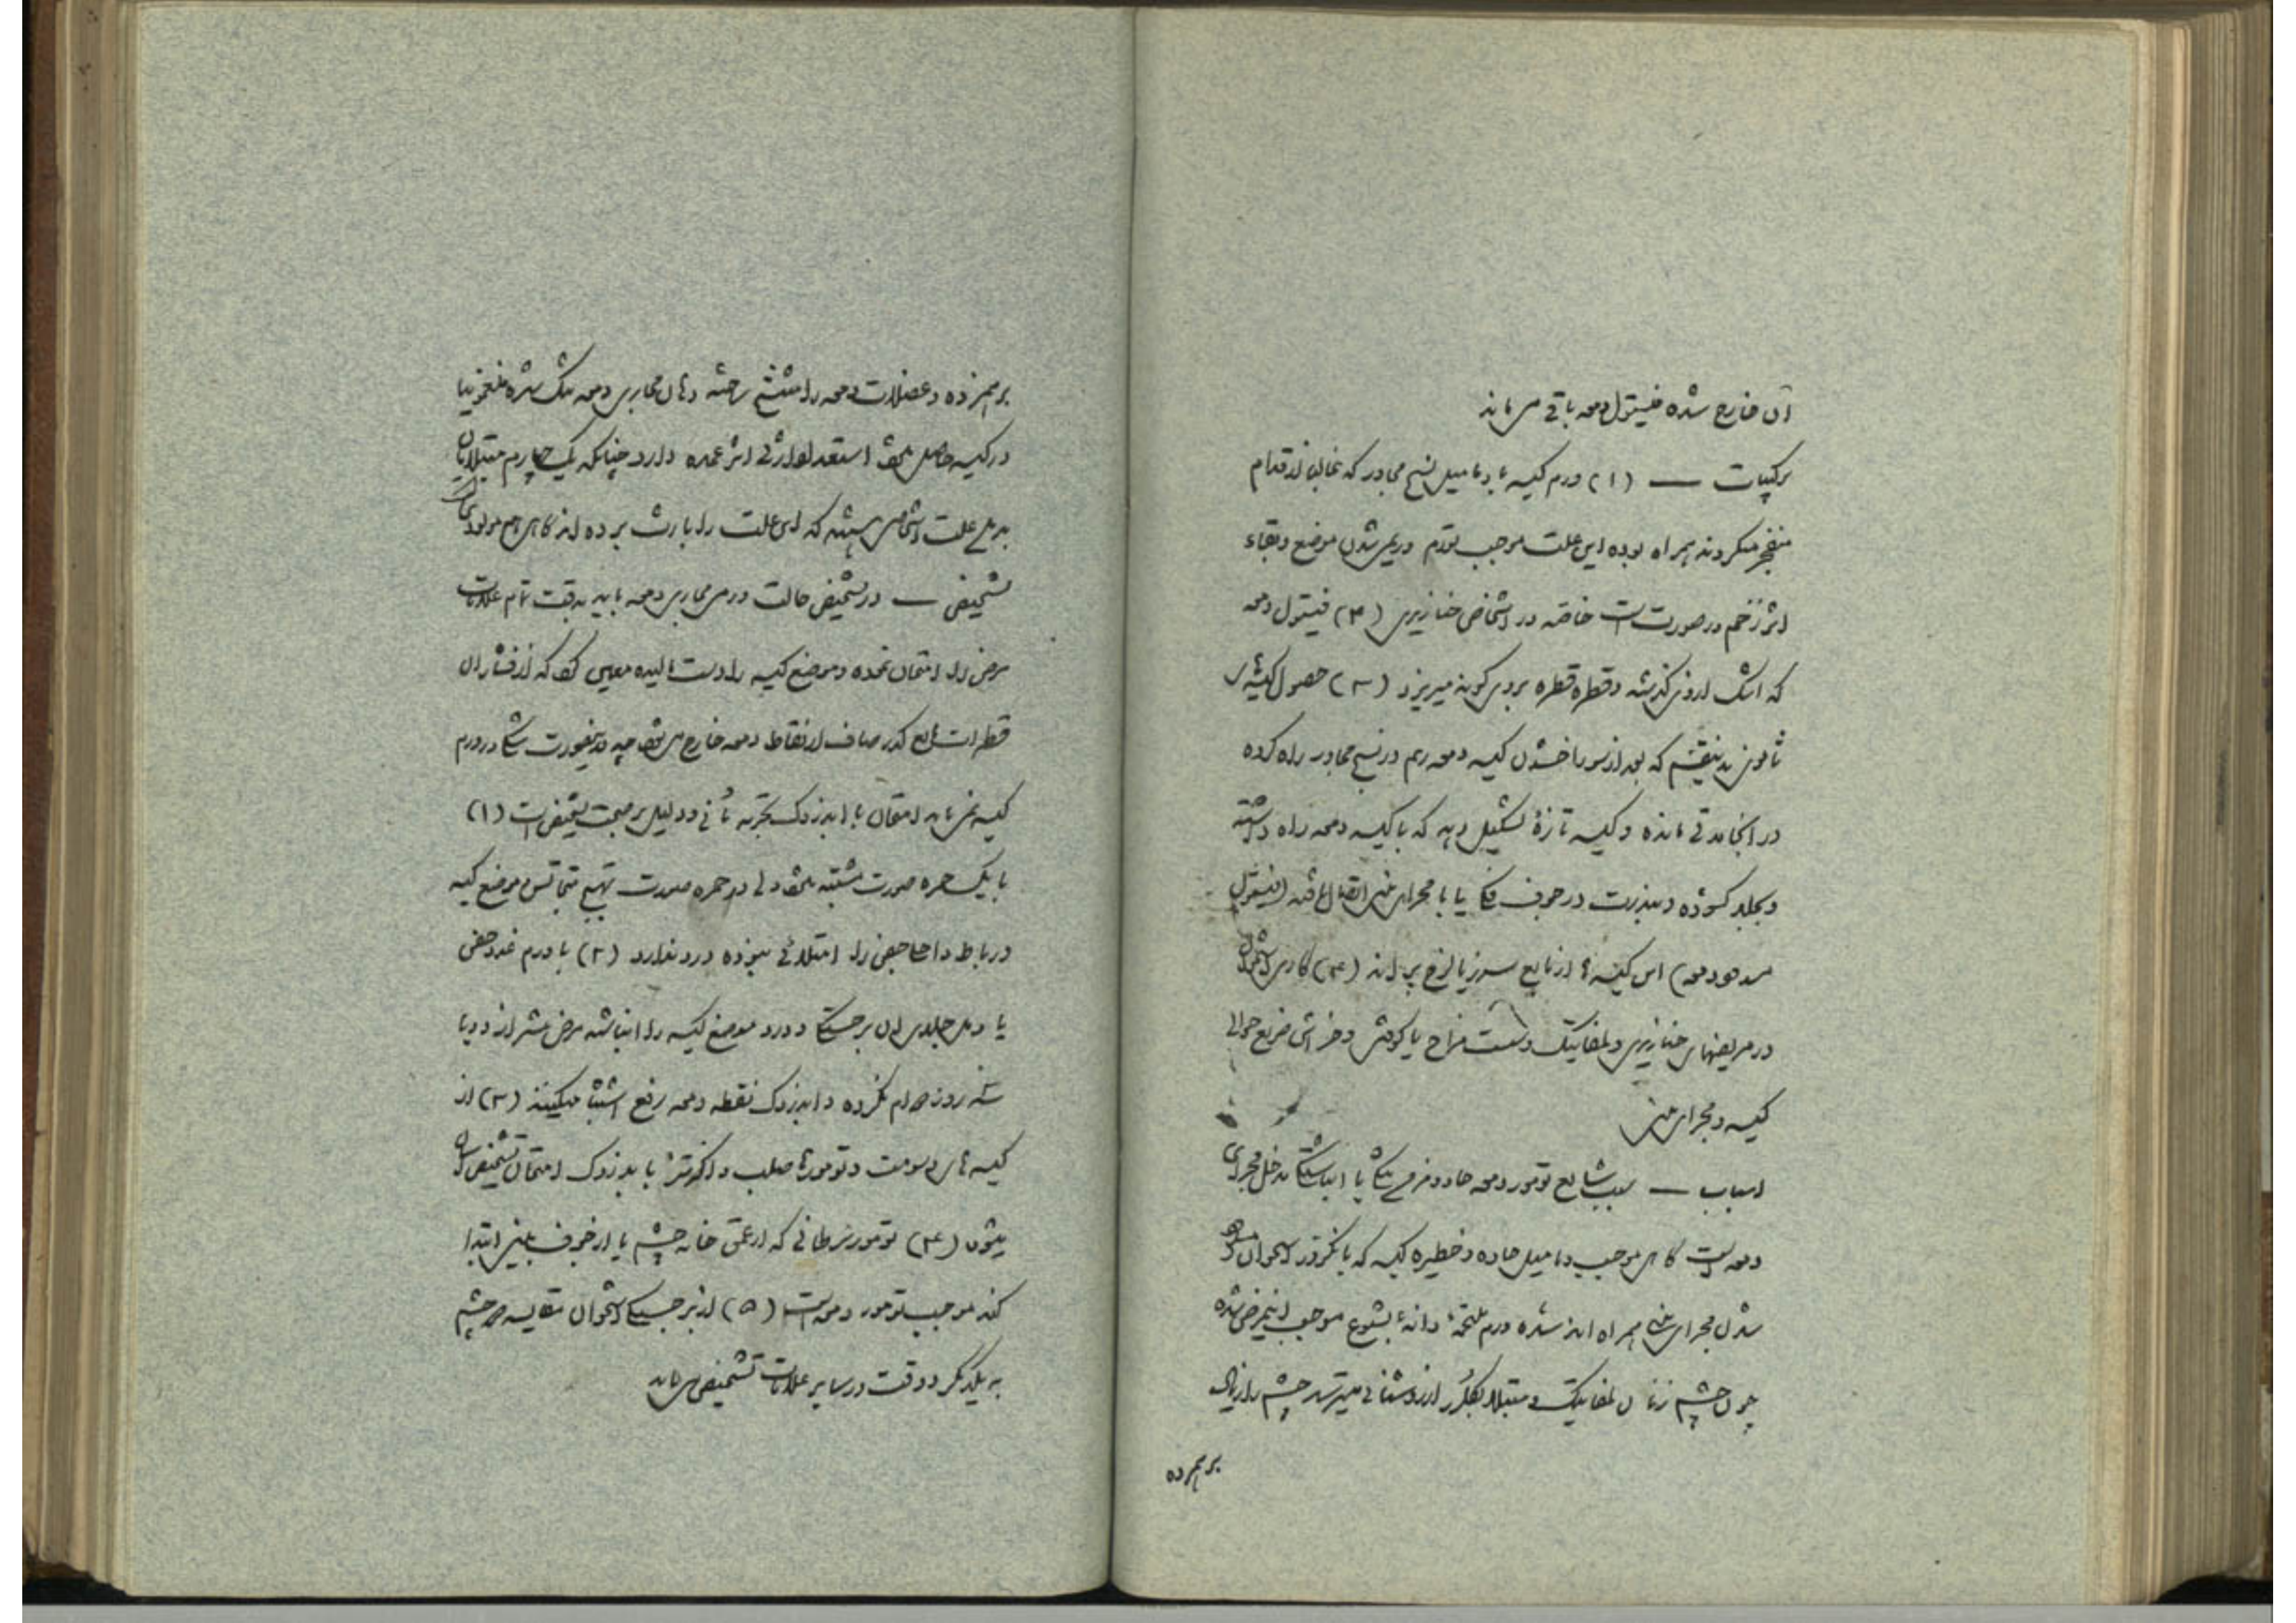 آن خارج شده فیستول دمعه باقی می‌ماند
ترکیبات — (۱) ورم کیسه با دمامیل نسج مجاور که غالبا از قدام
منفجر میگردند همراه بوده این علت موجب تورم و ریمی شدن موضع و بقاء
اثر زخم در صورت است خاصه در اشخاص خنازیری (۲) فیستول دمعه
که اشک از وی گذشته و قطره قطره بروی گونه میریزد (۳) حصول کیسهٔ
ثانوی بدینقسم که بعد از سوراخ شدن کیسه دمعه ریم در نسج مجاور راه کرده
در آنجا مدتی مانده و کیسه تازهٔ تشکیل دهد که با کیسه دمعه راه داشته
و بجلد گشوده و بندرت در جوف فک یا با مجرای غنی اتصال یافته (فیستول
مسدود دمعه) این کیسه‌ها از مایع سرزیا لزج پر اند (۴)
در مریضهای خنازیری و لمفاتیک و سست مزاج یا کوفتی و خراش ضریع حوالی
کیسه و مجرای غنی
اسباب — سبب شایع تومور دمعه حاد و مزمن تنگی یا انباشتگی مدخل مجرای
دمعه است گاهی موجب دمامیل حاده و خطیره کیسه که با نکروز استخوان و
شدن مجرای غنی همراه اند شده ورم ملتحمه و دانهٔ بشوع موجب اینمرض شده
چون چشم زنان لمفاتیک و مبتلا بکلرز از روشنائی میترسد چشم را زیاد
برهم‌زده
برهم‌زده و عضلات دمعه را متشنج ساخته دهان مجاری دمعه تنگ شده
در کیسه حاصل میشود استعداد ارثی اثر عمده دارد چنانکه یک چهارم مبتلایان
به این علت اشخاصی هستند که این علت را بارث برده اند گاهی هم مولودی
تشخیص — در تشخیص حالت ورمی مجاری دمعه باید بدقت تمام علامات
مرض را امتحان نموده و موضع کیسه را دست مالیده معین کرد که از فشار آن
قطرات مایع کدر صاف از نقاط دمعه خارج میشود چه در اینصورت شکی در ورم
کیسه نمی‌ماند امتحان با ابرزدک تجربه ثانی و دلیل بر صحت تشخیص است (۱)
با یک حمره صورت مشتبه میشود ولی در حمره صورت تهیج متجانس موضع کیسه
و رباط داخلی جفن را امتلائی نبوده درد ندارد (۲) با ورم غدد جفنی
یا دمل جلدی این برجستگی و درد موضع کیسه را انباشته مرض بیشتر از دو یا
سه روز دوام نکرده و ابرزدک نقطه دمعه رفع اشتباه میکنند (۳) از
کیسه‌های دسومت و تومورهای صلب و اگزستز با ابرزدک امتحان تشخیص آن
میشود (۴) تومور سرطانی که از عمق خانه چشم یا از جوف بینی ابتدا
کند موجب تومور دمعه است (۵) از برجستگی استخوان مقایسه دو چشم
به یکدیگر و دقت در سایر علامات تشخیص میماند